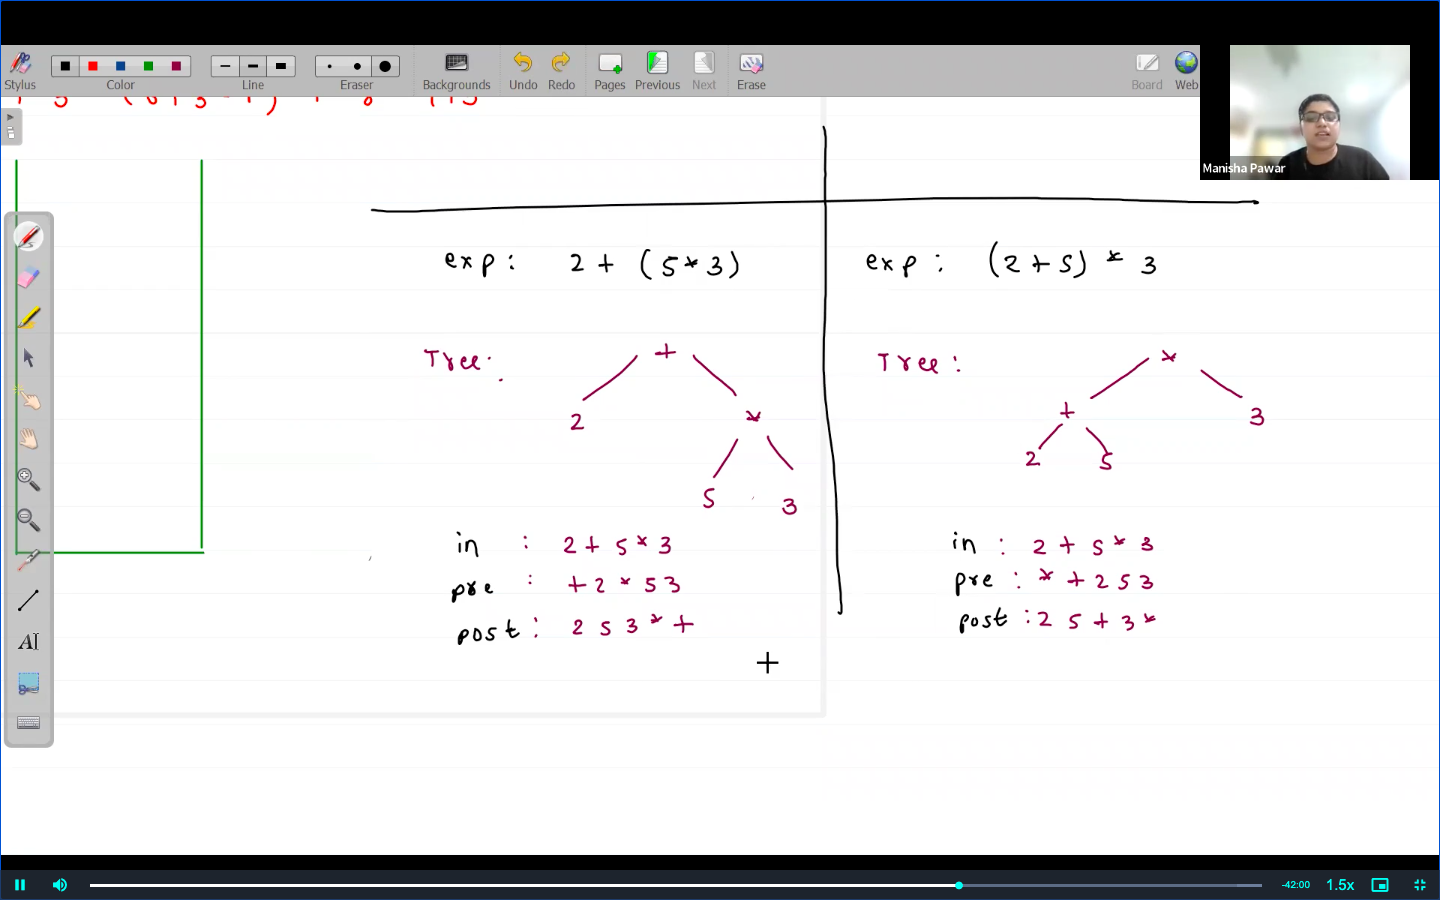 Stylus
Color
Line
Eraser
Backgrounds
Undo
Redo
Pages
Previous
Next
Erase
Board
Web
Manisha Pawar
exp : 2 + (5 * 3)
exp : (2 + 5) * 3
Tree :
+
2
*
5 3
Tree :
*
+ 3
2 5
in : 2 + 5 * 3
pre : + 2 * 5 3
post : 2 5 3 * +
in : 2 + 5 * 3
pre : * + 2 5 3
post : 2 5 + 3 *
AI
-42:00
1.5x